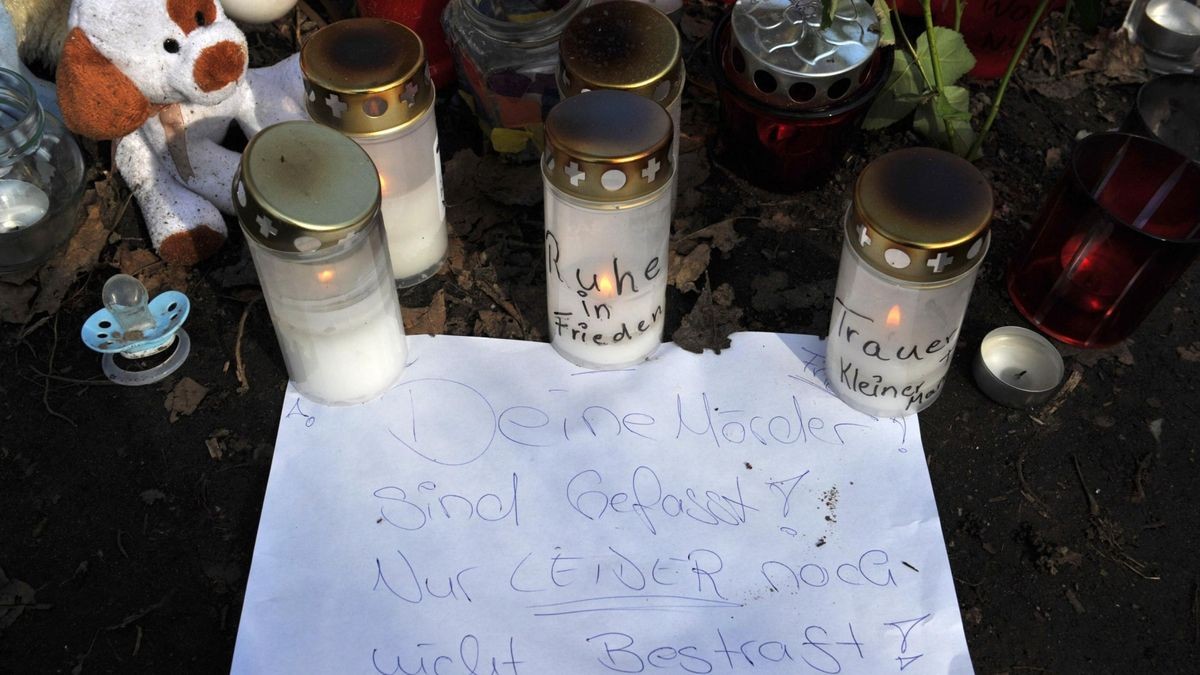 Ruhe
in
Frieden
Trauer
Kleiner
Deine Mörder!
sind Gefasst!
Nur LEIDER noch
nicht Bestraft!